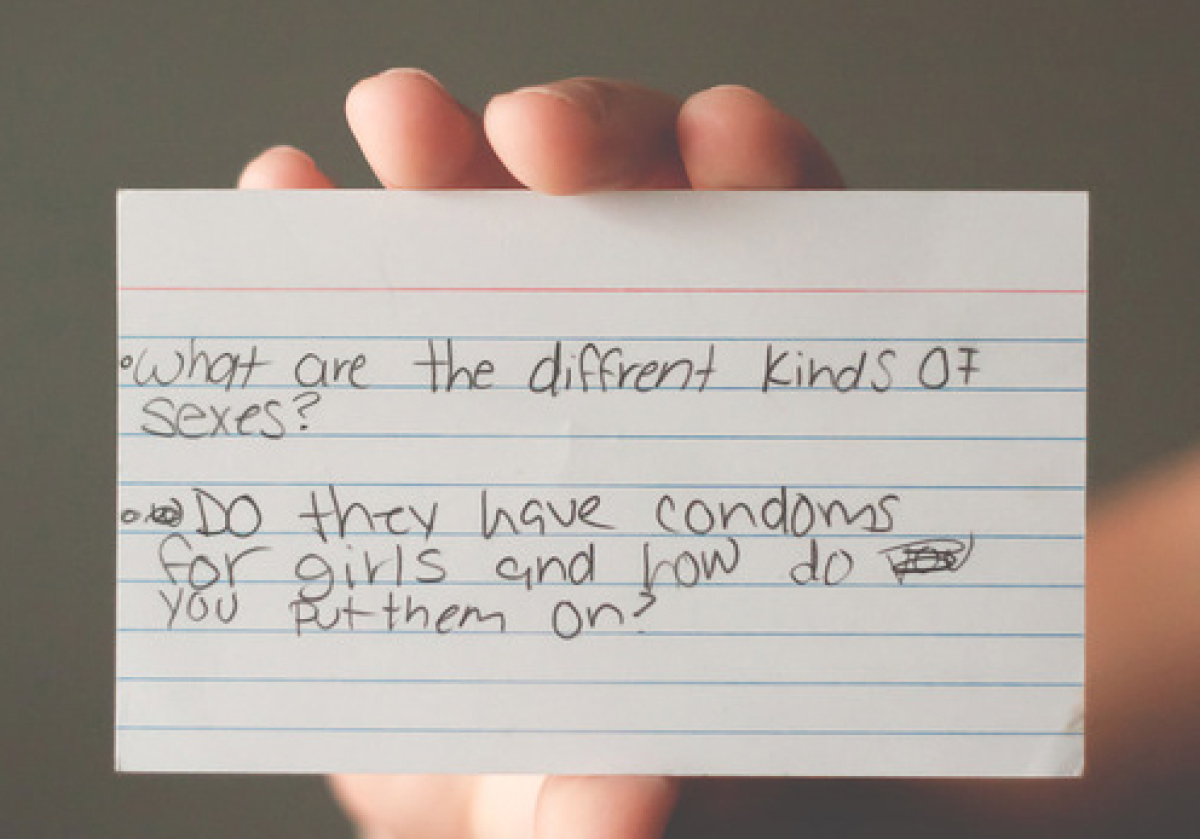 •What are the diffrent kinds of
sexes?
•Do they have condoms
for girls and how do
you put them on?